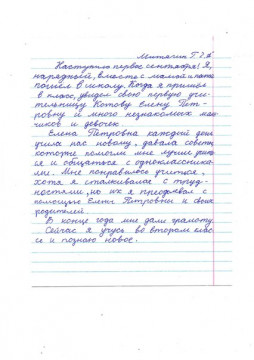 Митягин Г. 2 "б"
Наступило первое сентября! Я,
нарядный, вместе с мамой и папой
пошёл в школу. Когда я пришёл
в класс, увидел свою первую учи-
тельницу Котову Елену Пет-
ровну и много незнакомых маль-
чиков и девочек.
Елена Петровна каждый день
учила нас новому, давала советы,
которые помогли мне лучше учить-
ся и общаться с одноклассника-
ми. Мне понравилось учиться,
хотя я сталкивался с труд-
ностями, но их я преодолел с
помощью Елены Петровны и своих
родителей.
В конце года мне дали грамоту.
Сейчас я учусь во втором клас-
се и познаю новое.